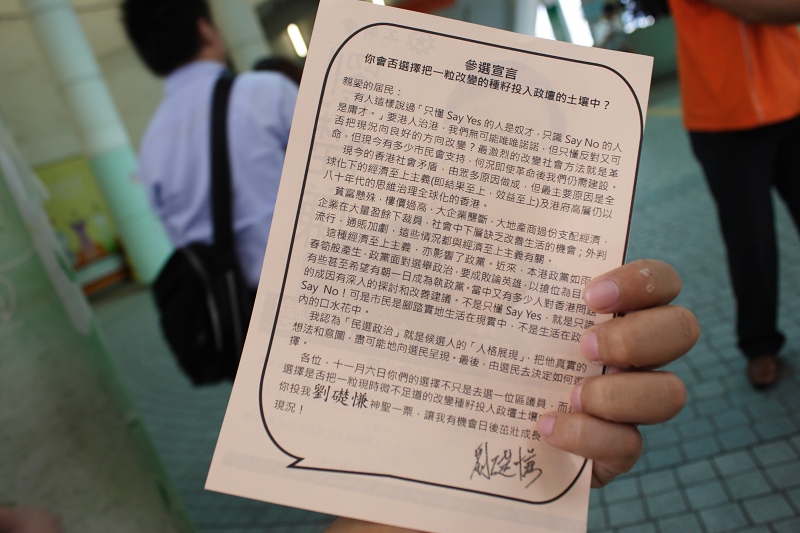 參選宣言
你會否選擇把一粒改變的種籽投入政壇的土壤中？
親愛的居民：
有人這樣說過「只懂 Say Yes 的人是奴才，只識 Say No 的人
是庸才。」要港人治港，我們無可能唯唯諾諾，但只懂反對又可
否把現況向良好的方向改變？最激烈的改變社會方法就是革
命，但現今有多少市民會支持，何況即使革命後我們仍需建設。
現今的香港社會矛盾，由眾多原因做成，但最主要原因是全
球化下的經濟至上主義(即結果至上，效益至上)及港府高層仍以
八十年代的思維治理全球化的香港。
貧富懸殊，樓價過高，大企業壟斷，大地產商過份支配經濟，
企業在大量盈餘下裁員，社會中下層缺乏改善生活的機會；外判
流行，通賬加劇，這些情況都與經濟至上主義有關。
這種經濟至上主義，亦影響了政黨。近來，本港政黨如雨
春筍般產生，政黨面對選舉政治，要成敗論英雄，以搶位為目
有些甚至希望有朝一日成為執政黨。當中又有多少人對香港問題
的成因有深入的探討和改善建議。不是只懂 Say Yes，就是只識
Say No！可是市民是腳踏實地生活在現實中，不是生活在政
內的口水花中。
我認為「民選政治」就是候選人的「人格展現」，把他真實的
想法和意圖，盡可能地向選民呈現。最後，由選民去決定如何選
擇。
各位，十一月六日你們的選擇不只是去選一位區議員，而
選擇是否把一粒現時微不足道的改變種籽投入政壇土壤
你投我劉礎慊神聖一票，讓我有機會日後茁壯成長
現況！
劉礎慊